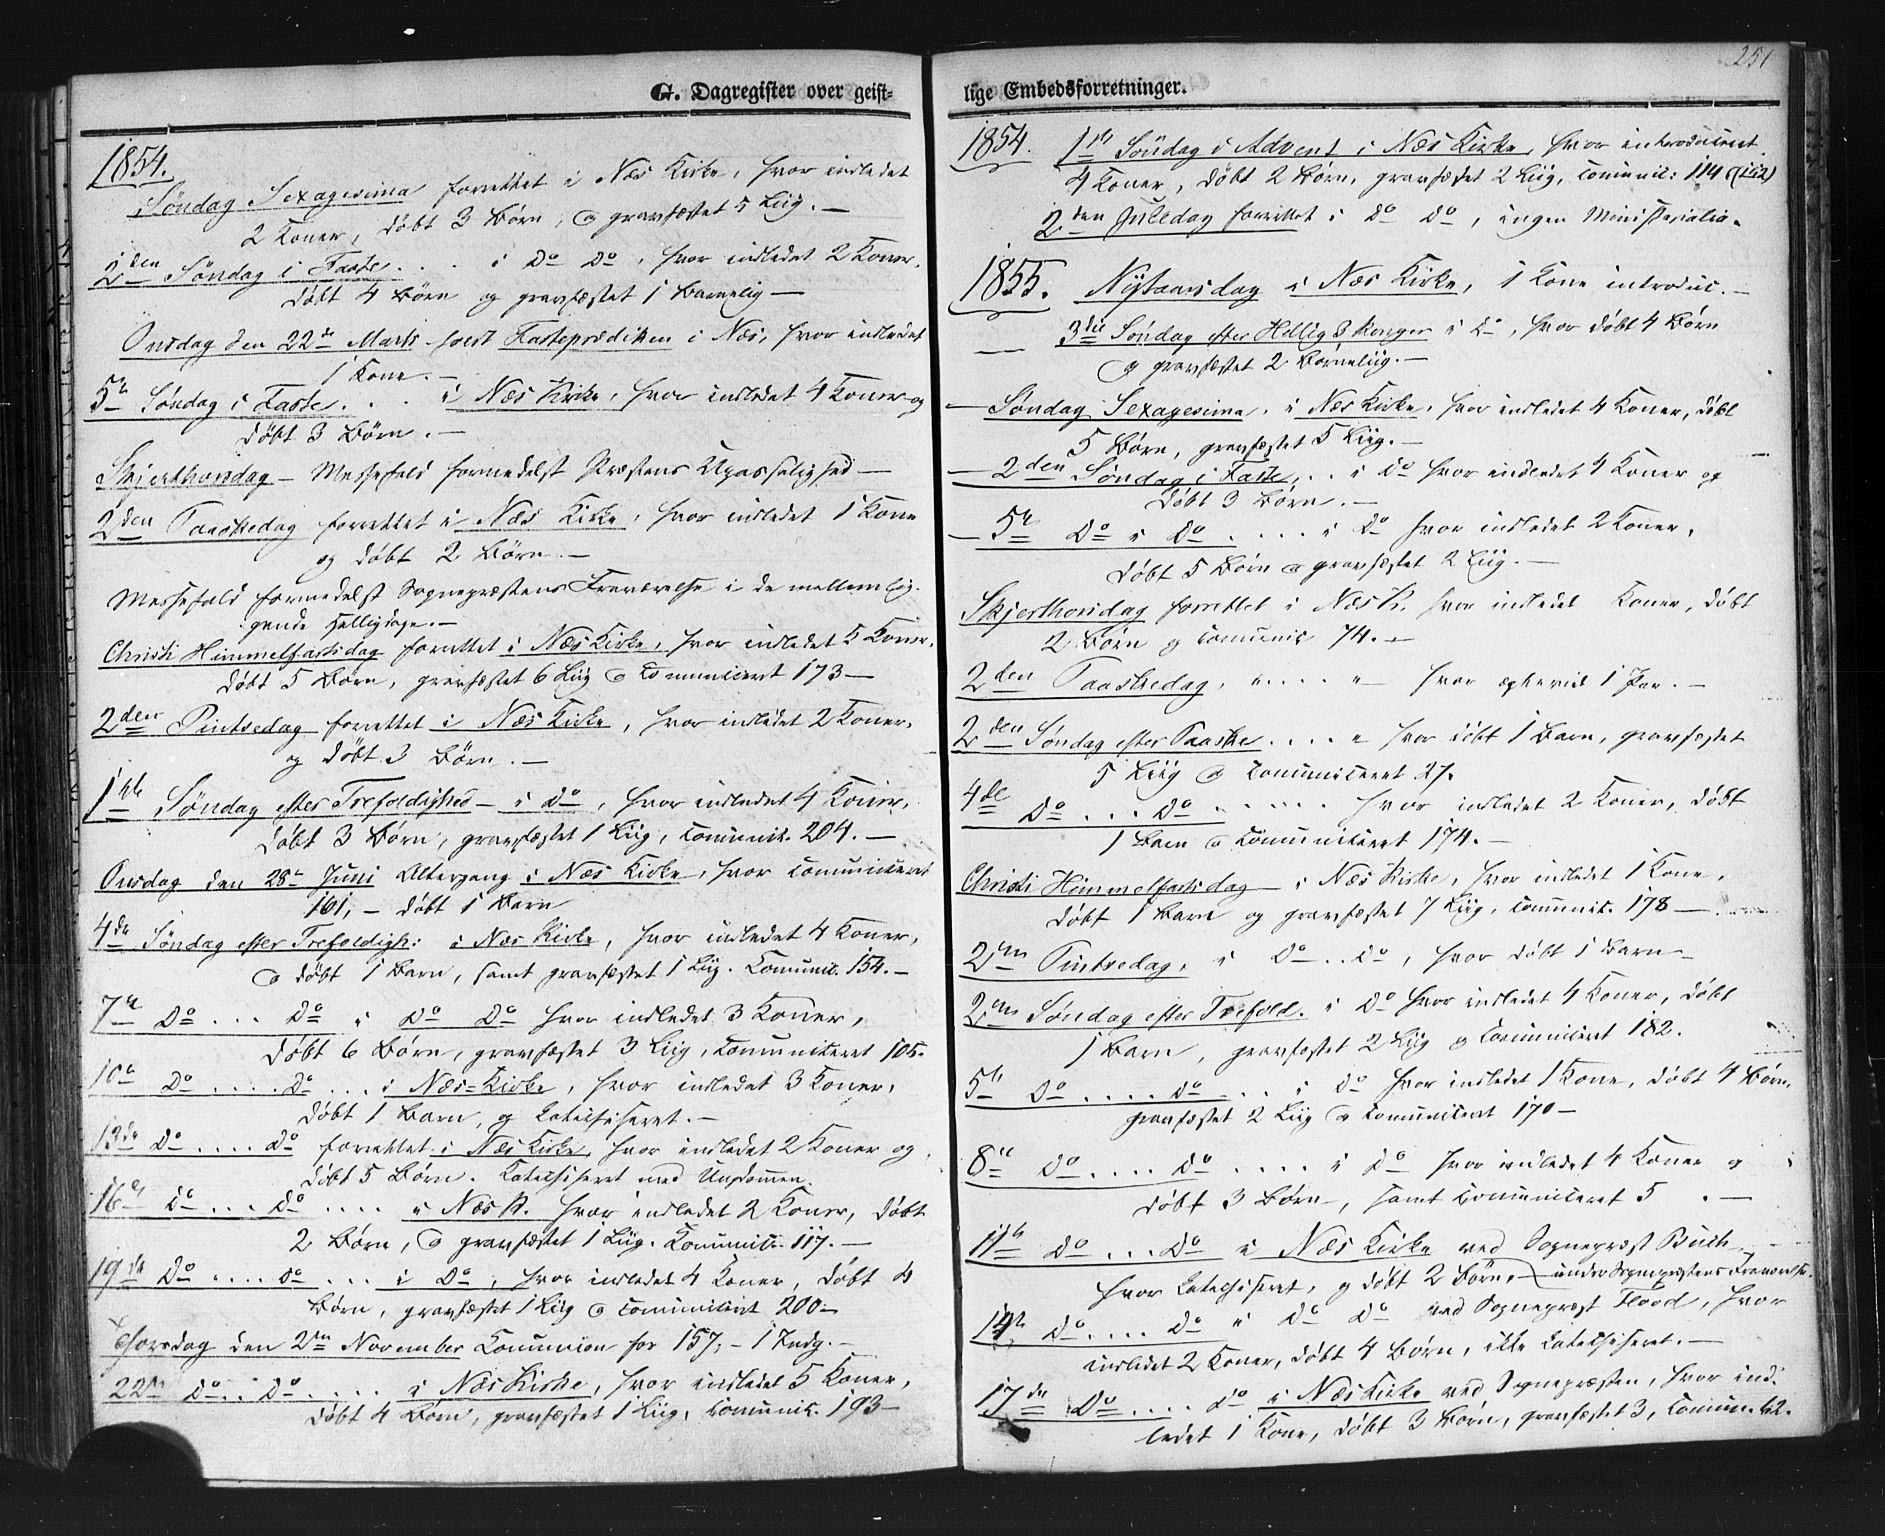 G. Dagregister over geist-
1854.
Søndag Sexagesima forrettet i Næs Kirke, hvor indledet
2 Koner, døbt 3 Børn, og gravfæstet 5 Liig. —
2den Søndag i Faste . . . i Do Do, hvor indledet 2 Koner,
døbt 4 Børn og gravfæstet 1 Barnelig —
Onsdag den 22de Marts holdt Fasteprædiken i Næs, hvor indledet
1 Kone. —
5te Søndag i Faste. . . i Næs Kirke, hvor indledet 4 Koner og
døbt 3 Børn. —
Skjerthorsdag — Messefald formedelst Præstens Upasselighed —
2den Paaskedag forrettet i Næs Kirke, hvor indledet 1 Kone
og døbt 2 Børn. —
Messefald formedelst Sognepræstens Fraværelse i de mellemlig-
gende Helligdage. —
Christi Himmelfartsdag forrettet i Næs Kirke, hvor indledet 5 Koner,
døbt 5 Børn, gravfæstet 6 Liig og Communiceret 173 —
2den Pintsedag forrettet i Næs Kirke, hvor indledet 2 Koner,
og døbt 3 Børn. —
1ste Søndag efter Trefoldighed — i Do, hvor indledet 4 Koner,
døbt 3 Børn, gravfæstet 1 Liig, Communic. 204. —
Onsdag den 28de Juni Altergang i Næs Kirke, hvor communiceret
161, — døbt 1 Barn
4de Søndag efter Trefoldigh: i Næs Kirke, hvor indledet 4 Koner,
og døbt 1 Barn, samt gravfæstet 1 Liig. Communic. 154. —
7de Do . . . Do i Do Do hvor indledet 3 Koner,
døbt 6 Børn, gravfæstet 3 Liig, Communiceret 105.
10de Do . . . . Do . . . i Næs-Kirke, hvor indledet 3 Koner,
døbt 1 Barn, og Catechiseret. —
13de Do . . . . Do forrettet i Næs Kirke, hvor indledet 2 Koner og
døbt 5 Børn. Catechiseret med Ungdommen.
16de Do . . . Do . . . . i Næs K. hvor indledet 2 Koner, døbt
2 Børn, og gravfæstet 1 Liig. Communic. 117. —
19de Do . . . . Do . . . i Do, hvor indledet 4 Koner, døbt 4
Børn, gravfæstet 1 Liig og Communiceret 200 —
Thorsdag den 2den November Communion for 157, — 1 Indg. —
22de Do . . Do . . . . i Næs Kirke, hvor indledet 5 Koner,
døbt 4 Børn, gravfæstet 1 Liig, Communic. 193 —
251
lige Embedsforretninger.
1854. 1ste Søndag i Advent i Næs Kirke, hvor introduceret
4 Koner, døbt 2 Børn, gravfæstet 2 Liig, Communic: 114 (152)
2den Juledag forrettet i Do Do, ingen Ministerialia.
1855. Nytaarsdag i Næs Kirke, 1 Kone introduc. —
3die Søndag efter Hellig 3 Konger i Do, hvor døbt 4 Børn
og gravfæstet 2 Børneliig. —
— Søndag Sexagesima, i Næs Kirke, hvor indledet 4 Koner, døbt
5 Børn, gravfæstet 5 Liig. —
— 2den Søndag i Faste, . . i Do hvor indledet 4 Koner og
døbt 3 Børn. —
— 5te Do i Do . . . . i Do hvor indledet 2 Koner,
døbt 5 Børn og gravfæstet 2 Liig. —
Skjerthorsdag forrettet i Næs K. hvor indledet Koner, døbt
2 Børn og Communic 74. —
2den Paaskedag, " . . . . " — hvor ægtevied 1 Par. —
2den Søndag efter Paaske . . . . " hvor døbt 1 Barn, gravfæstet
5 Liig og Communiceret 27.
4de Do . . . Do . . . . . . hvor indledet 2 Koner, døbt
1 Barn og Communiceret 174. —
Christi Himmelfartsdag — i Næs Kirke, hvor indledet 1 Kone,
døbt 1 Barn og gravfæstet 7 Liig, Communic. 178 —
2den Pintsedag, i Do . . Do, hvor døbt 1 Barn —
2den Søndag efter Trefold. i Do hvor indledet 4 Koner, døbt
1 Barn, gravfæstet 2 Liig og Communiceret 182.
5te Do . . . . Do . . . i Do hvor indledet 1 Kone, døbt 4 Børn,
gravfæstet 2 Liig og Communiceret 170 —
8de Do . . . . Do . . . . i Do hvor indledet 4 Koner og
døbt 3 Børn —, samt Communiceret 5 . —
11te Do . . . Do i Næs Kirke ved Sognepræst Buch —
hvor Catechiseret, og døbt 2 Børn. — under Sognepræstens Fraværelse.
14de Do . . . . Do i Do Do ved Sognepræst Flood, hvor
indledet 2 Koner, døbt 4 Børn, ikke Catechiseret. —
17de Do . . . . Do i Næs Kirke ved Sognepræsten, hvor ind-
ledet 1 Kone, døbt 3 Børn, gravfæstet 3, Commun. 62.